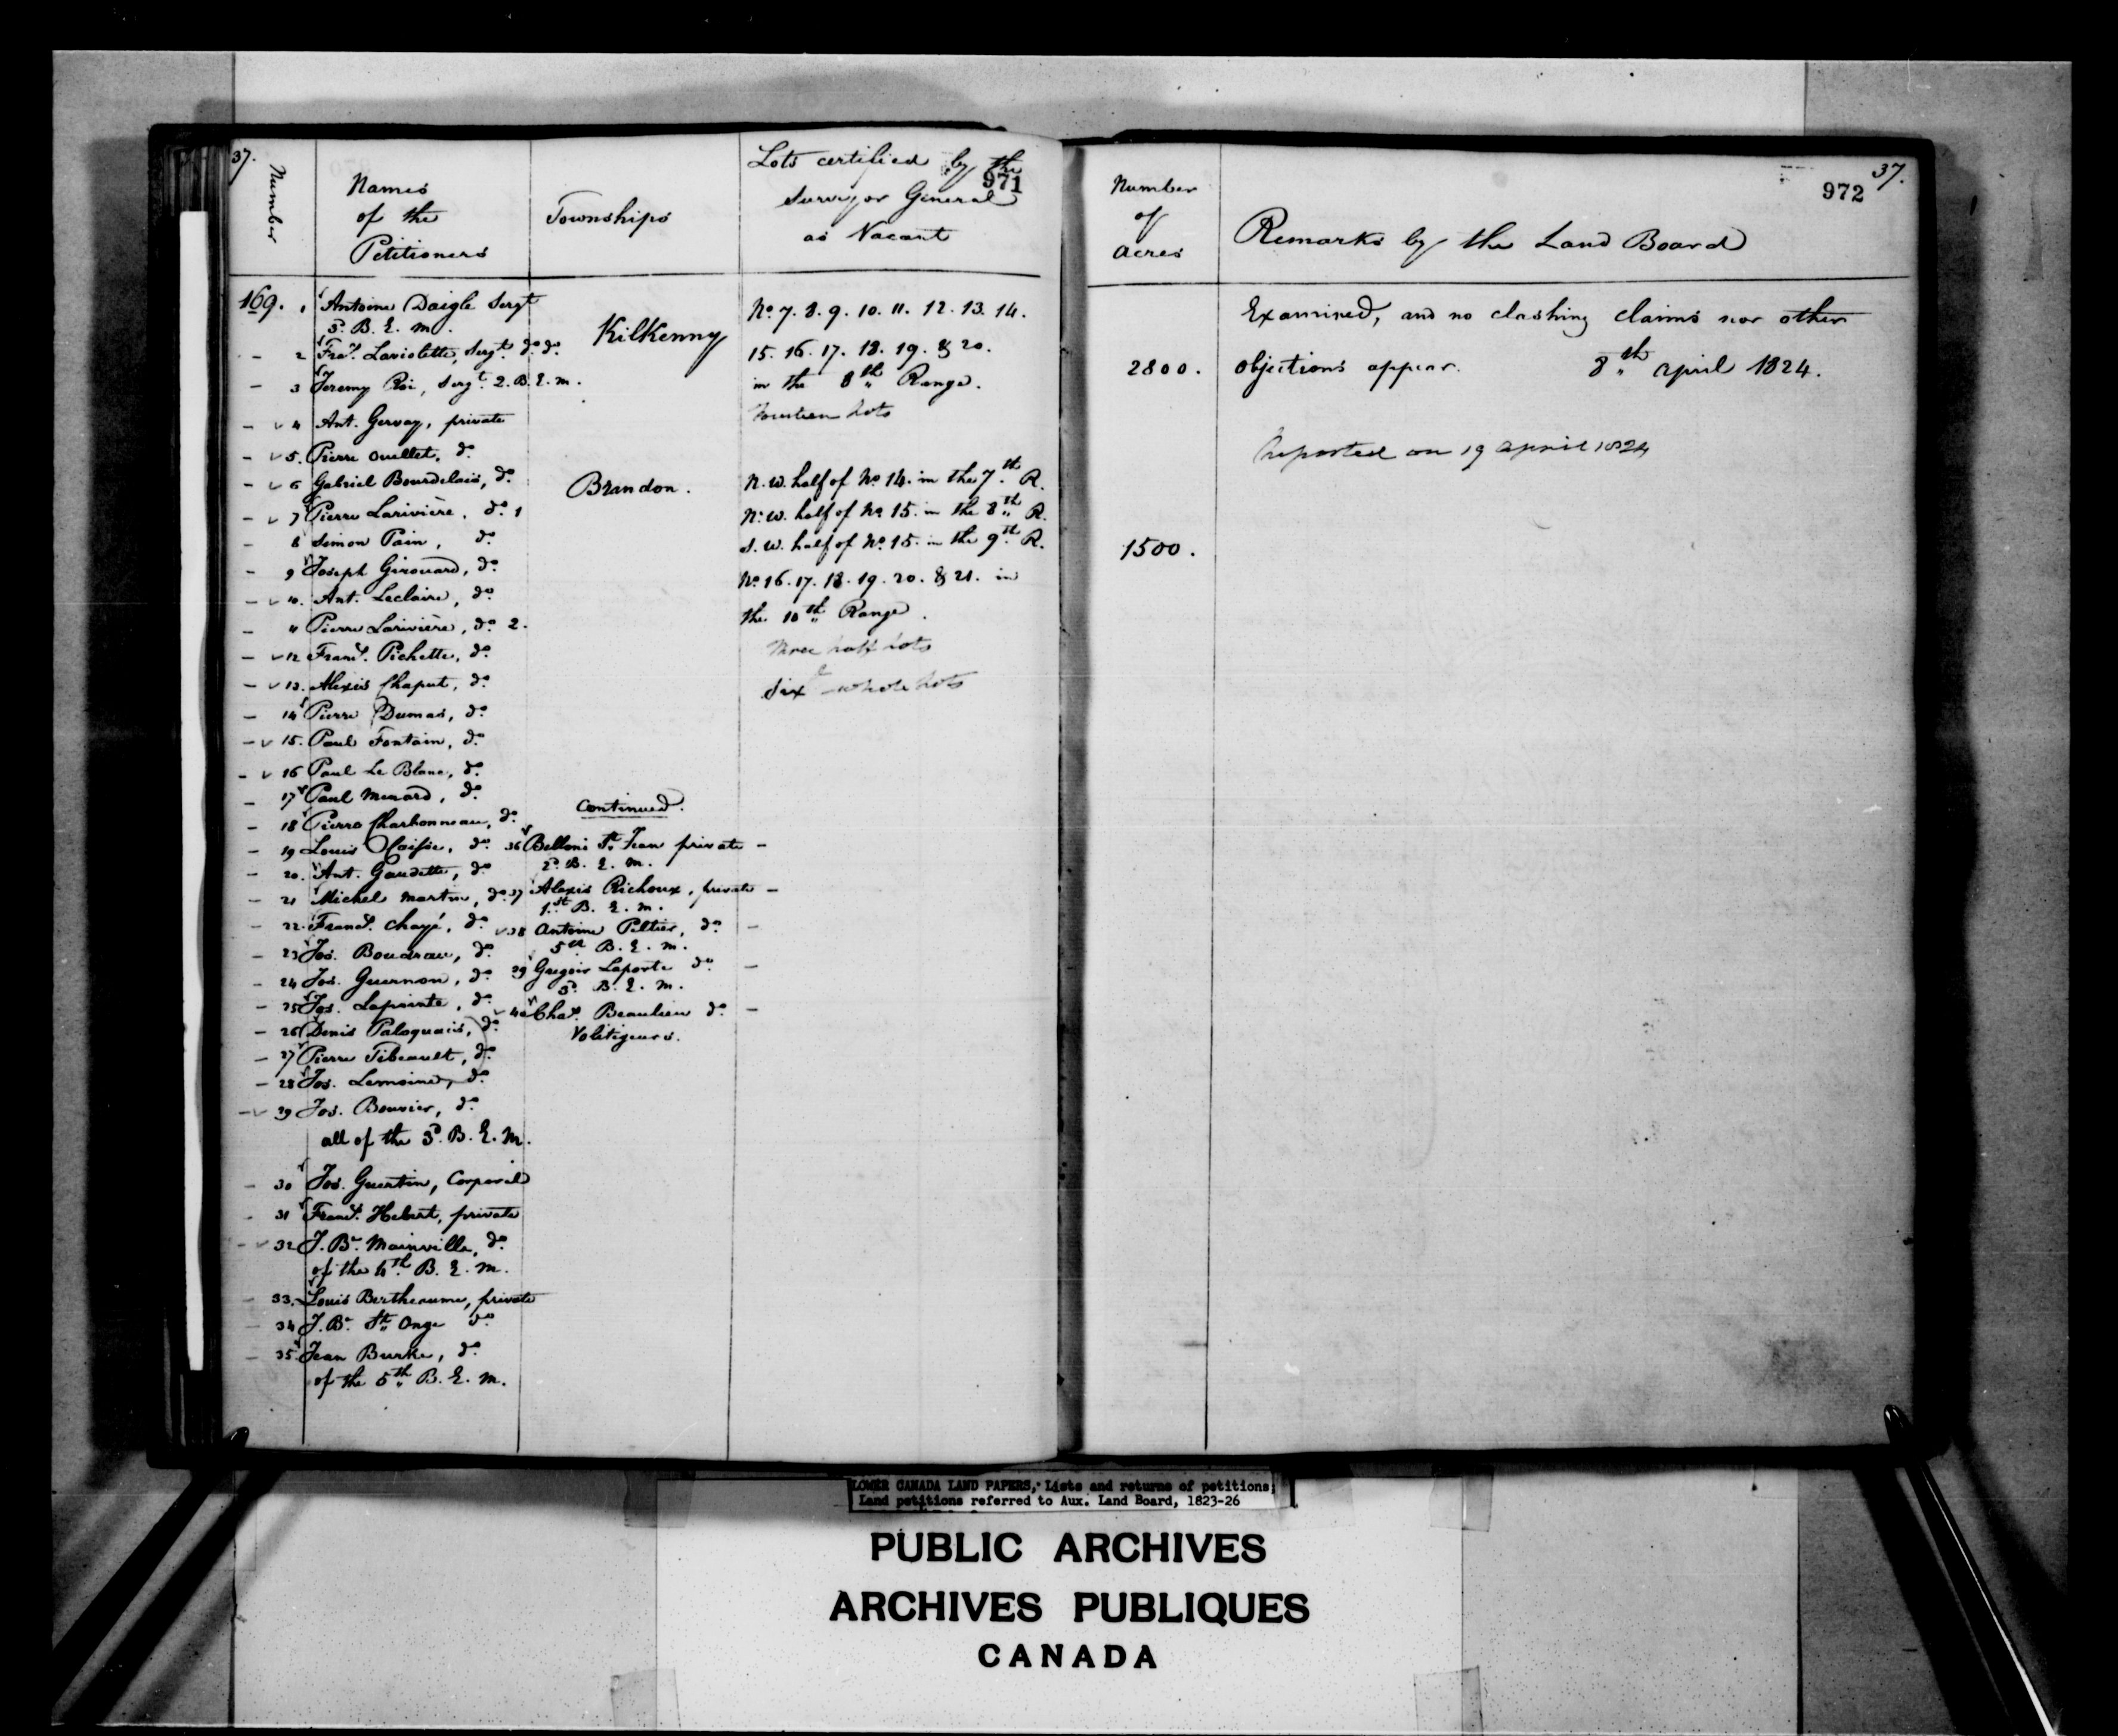 37.
Number
Names
of the
Petitioners
Townships
Lots certified by the
971
Surveyor General
as Vacant
169. 1 Antoine Daigle Sergt
5. B. E. M.
2 Fras. Laviolette, Sergt. do do.
3 Jeremy Roi, Sergt. 2. B. E. M.
4 Ant. Gervay, private
5. Pierre Ouellet, do
6 Gabriel Bourdelais, do
7 Pierre Larivière, do 1
8 Simon Pain, do
9 Joseph Girouard, do
10. Ant. Leclaire, do
11 Pierre Larivière, do 2.
12 Frans. Pichette, do
13. Alexis Chaput, do
14 Pierre Dumas, do
15. Paul Fontain, do
16 Paul Le Blanc, do
17 Paul Menard, do
18 Pierre Charbonneau, do
19 Louis
do
20. Ant. Gaudette, do
21 Michel Martin, do
22. Frans. Chayé, do
23 Jos. Boudrau, do
24 Jos. Guernon, do
25 Jos. Lapointe, do
26 Denis Paloquais, do
27 Pierre Tibeault, do
28 Jos. Lemoine, do
29 Jos. Bouvier, do
all of the 5. B. E. M.
30 Jos. Guertin, Corporal
31 Frans. Hebert, private
32 J. Bte. Mainville, do
of the 4th B. E. M.
33. Louis Bertheaume, private
34 J. Bte. St. Onge do
35. Jean Burke, do
of the 5th B. E. M.
Kilkenny
Brandon.
Continued.
36 Belloni St. Jean private
5. B. E. M.
37 Alexis Richoux, private
1st B. E. M.
38 Antoine Peltier, do
5th B. E. M.
39 Gregoir Laporte do
5. B. E. M.
40 Chas. Beaulieu do
Voltigeurs.
No. 7. 8. 9. 10. 11. 12. 13. 14.
15. 16. 17. 18. 19. & 20.
in the 8th Range.
Fourteen Lots
N. W. half of No. 14. in the 7th R.
N. W. half of No. 15. in the 8th R.
S. W. half of No. 15. in the 9th R.
No. 16. 17. 18. 19. 20. & 21. in
the 10th Range.
Three half Lots
Six whole Lots
Number
of
Acres
2800.
1500.
37.
972
Remarks by the Land Board
Examined, and no clashing claims nor other
objections appear. 8th April 1824.
Reported on 19 April 1824
LOWER CANADA LAND PAPERS, Lists and returns of petitions;
Land petitions referred to Aux. Land Board, 1823-26
PUBLIC ARCHIVES
ARCHIVES PUBLIQUES
CANADA